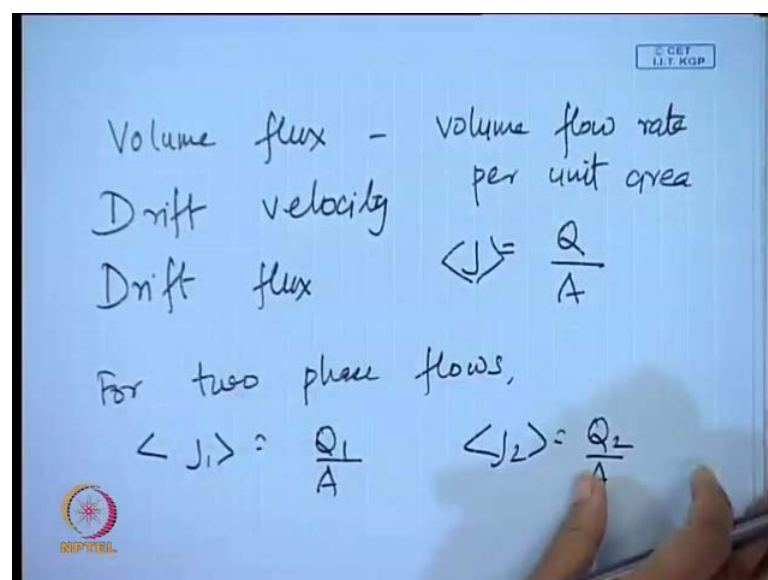 © CET
I.I.T. KGP
Volume flux – volume flow rate
per unit area
Drift velocity
<J> = Q/A
Drift flux
For two phase flows,
<J₁> = Q₁/A <J₂> = Q₂/A
NPTEL